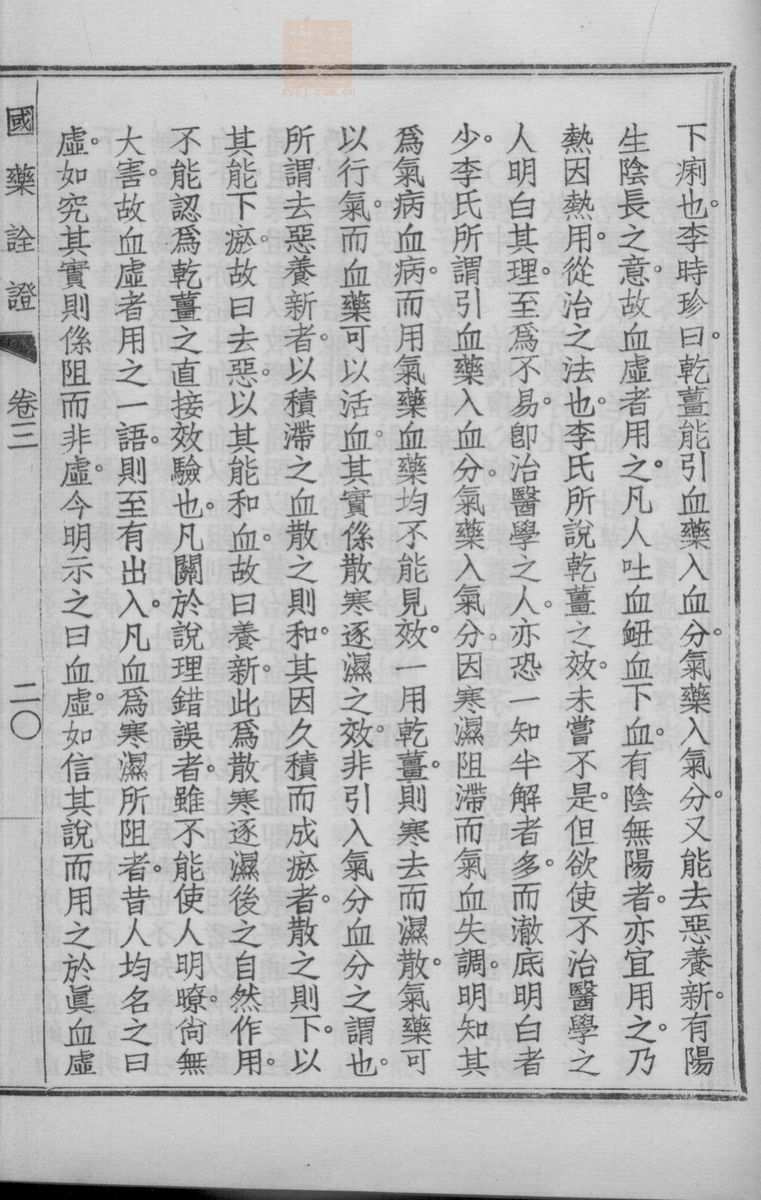 下痢也。李時珍曰。乾薑能引血藥入血分。氣藥入氣分。又能去惡養新。有陽
生陰長之意。故血虛者用之。凡人吐血衄血下血。有陰無陽者。亦宜用之。乃
熱因熱用。從治之法也。李氏所說乾薑之效。未嘗不是。但欲使不治醫學之
人明白其理。至爲不易。卽治醫學之人。亦恐一知半解者多。而澈底明白者
少。李氏所謂引血藥入血分。氣藥入氣分。因寒濕阻滯而氣血失調。明知其
爲氣病血病。而用氣藥血藥均不能見效。一用乾薑。則寒去而濕散。氣藥可
以行氣。而血藥可以活血。其實係散寒逐濕之效。非引入氣分血分之謂也。
所謂去惡養新者。以積滯之血散之則和。其因久積而成瘀者。散之則下。以
其能下瘀。故曰去惡。以其能和血。故曰養新。此爲散寒逐濕後之自然作用。
不能認爲乾薑之直接效驗也。凡關於說理錯誤者。雖不能使人明瞭。尙無
大害。故血虛者用之一語。則至有出入。凡血爲寒濕所阻者。昔人均名之曰
虛。如究其實則係阻而非虛。今明示之曰血虛。如信其說而用之於眞血虛
國藥詮證 卷三 二〇